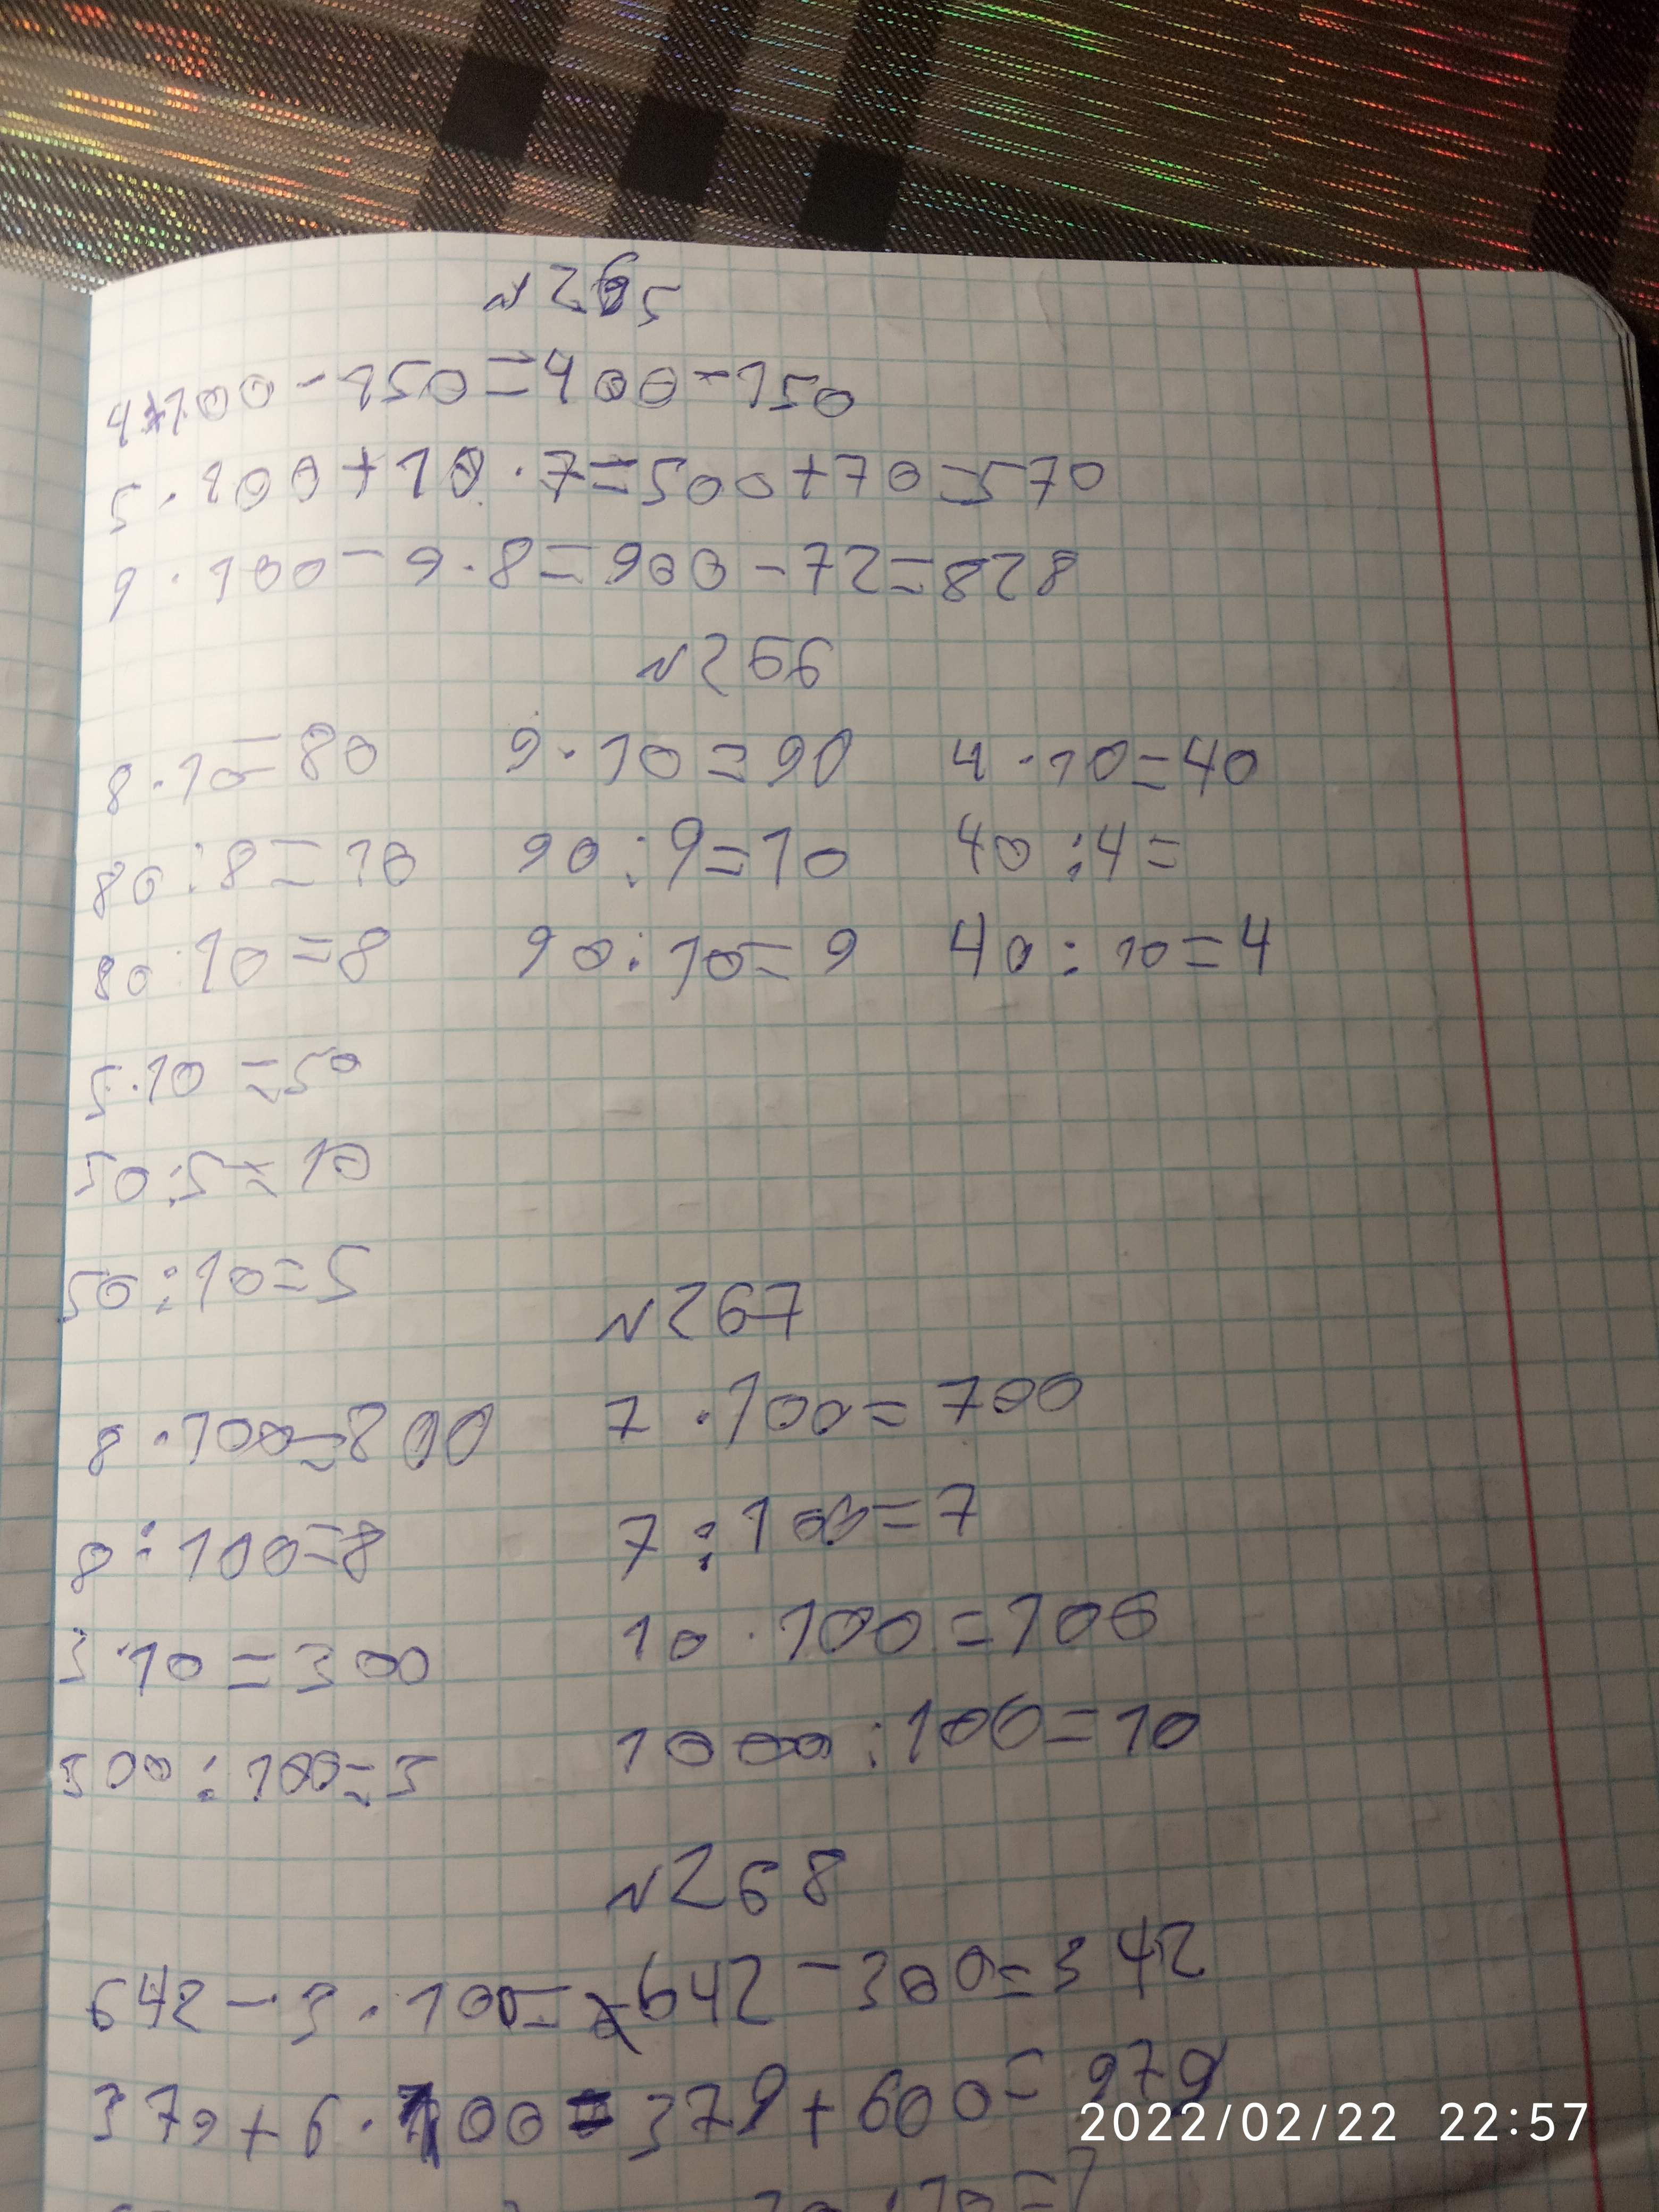 №265
4·100-150=400-150
5·100+10·7=500+70=570
9·100-9·8=900-72=828
№266
8·10=80 9·10=90 4·10=40
80:8=10 90:9=10 40:4=
80:10=8 90:10=9 40:10=4
5·10=50
50:5=10
50:10=5
№267
8·100=800 7·100=700
8:100=8 7:100=7
3·10=300 10·100=100
300:100=3 1000:100=10
№268
642-3·100=642-300=342
379+6·100=379+600=979
2022/02/22 22:57